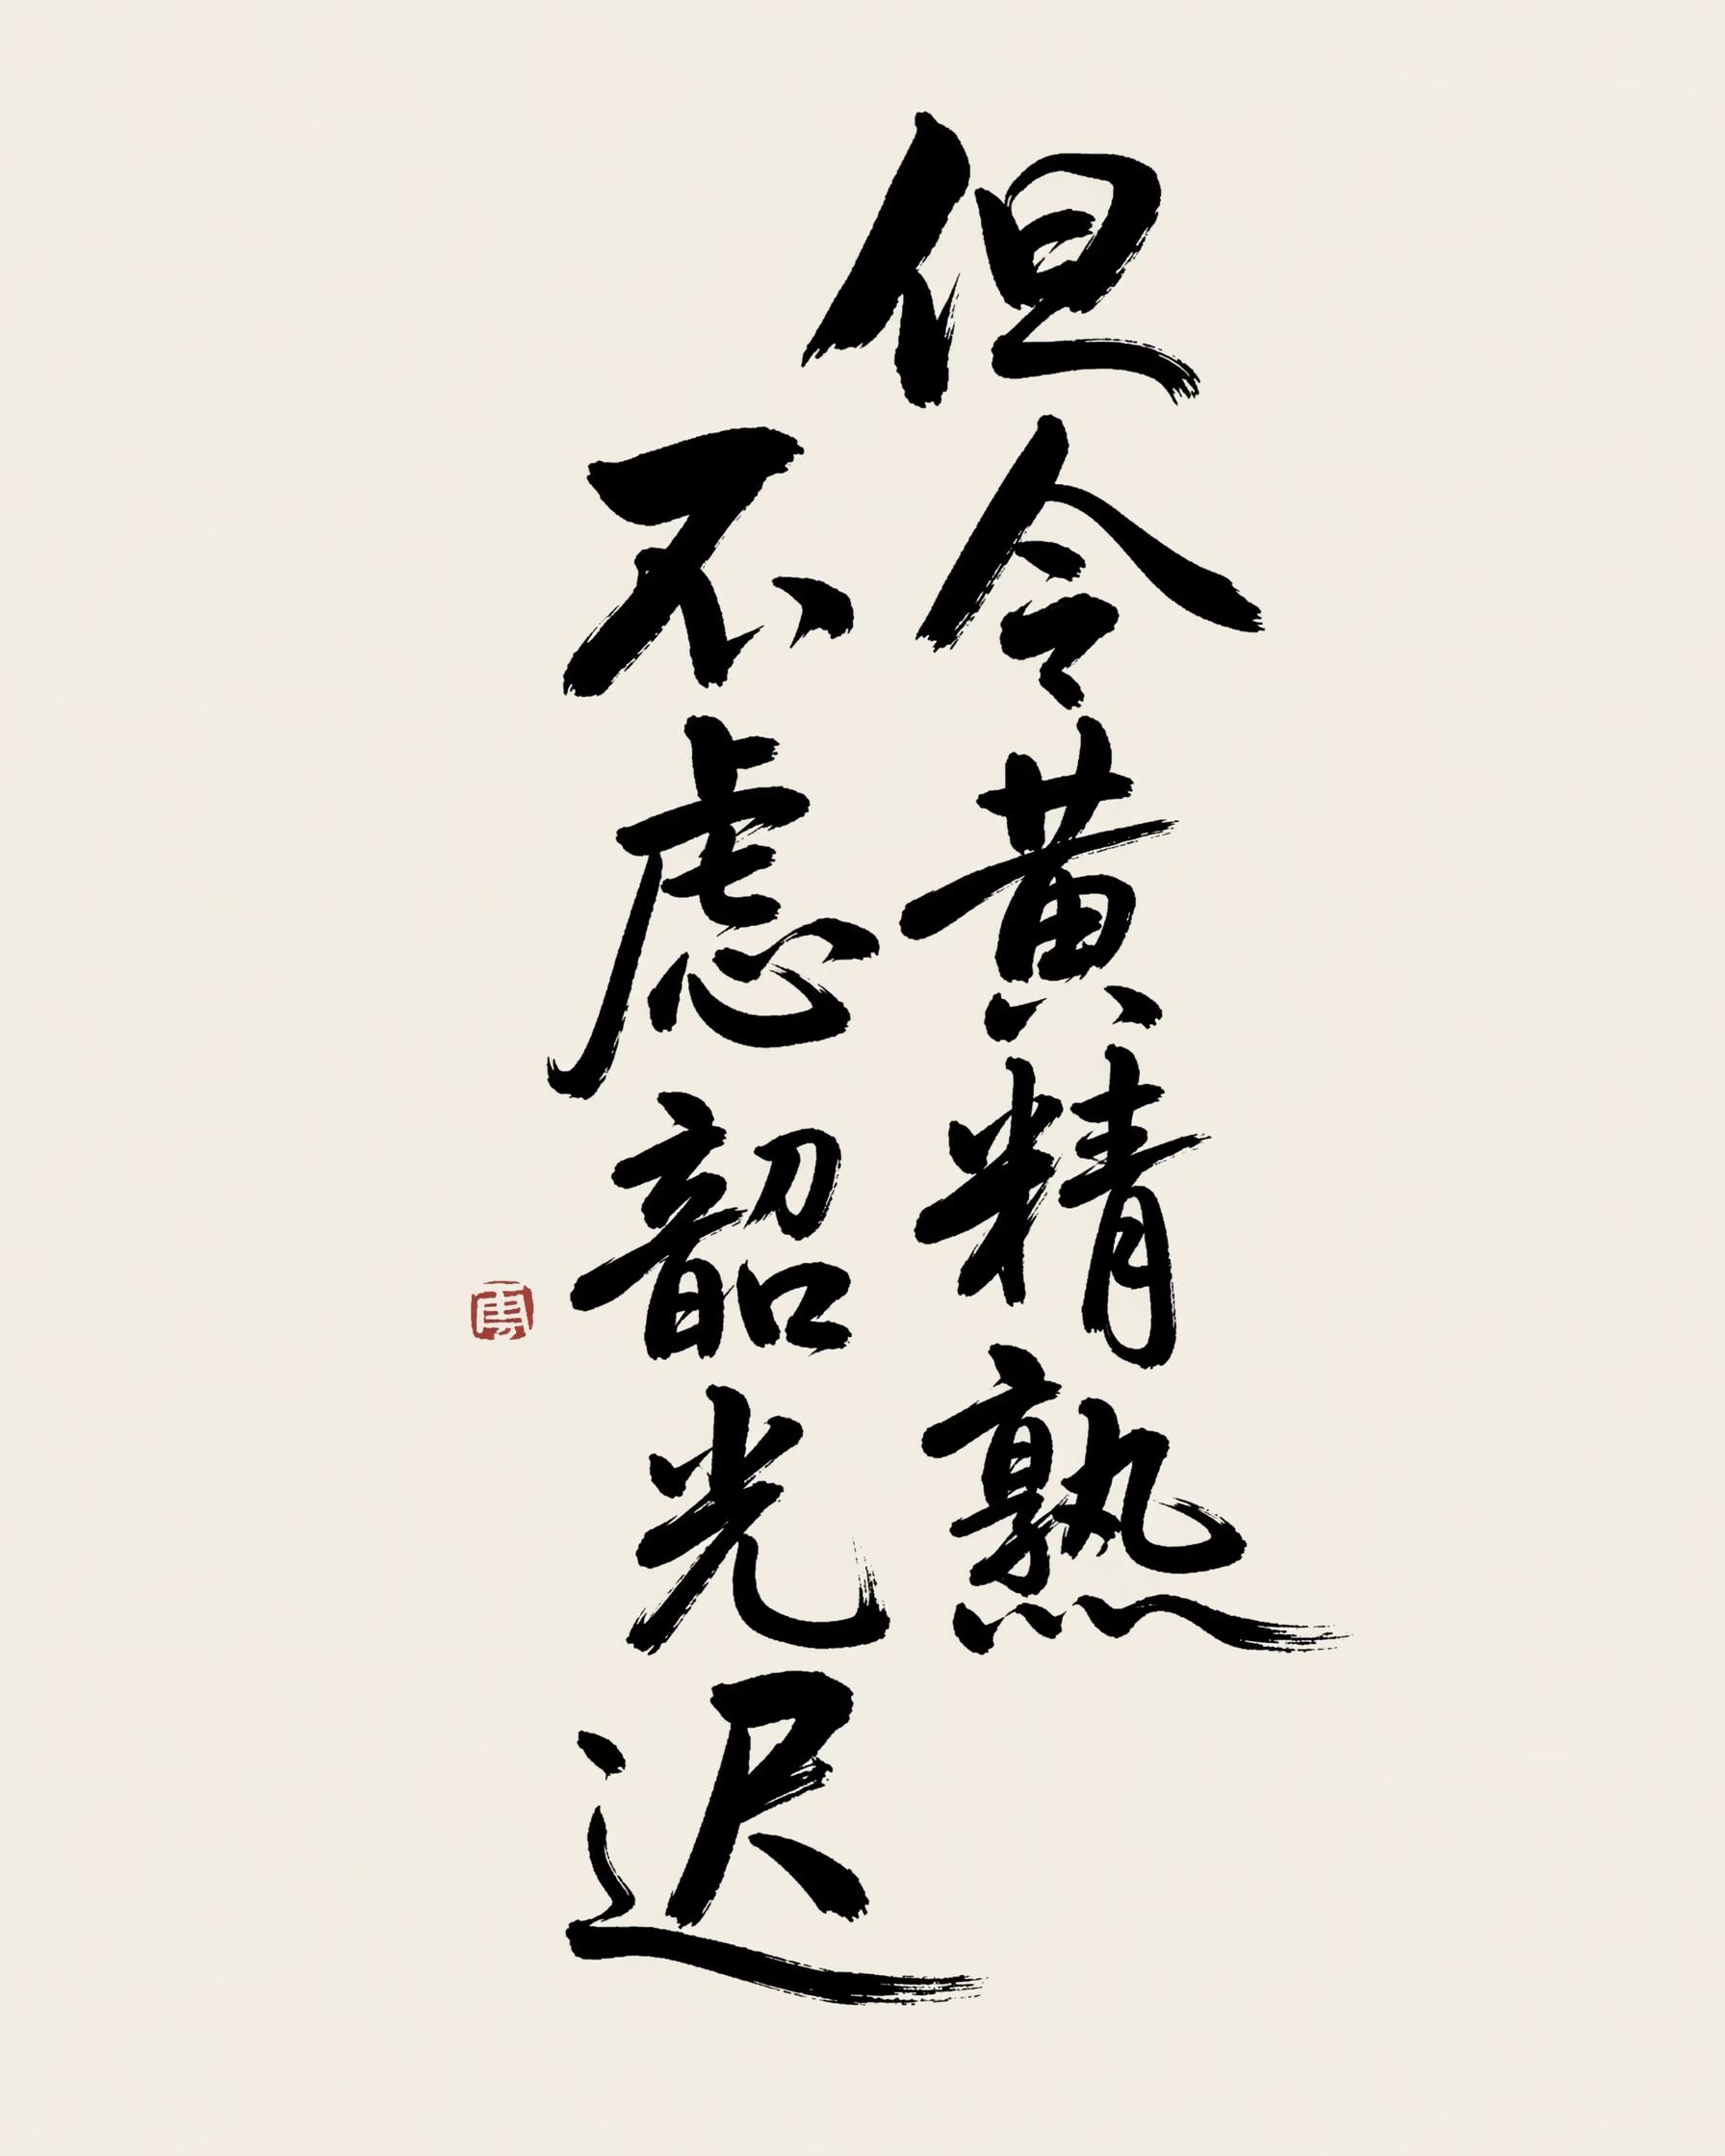 但令黄精熟
不虑韶光迟